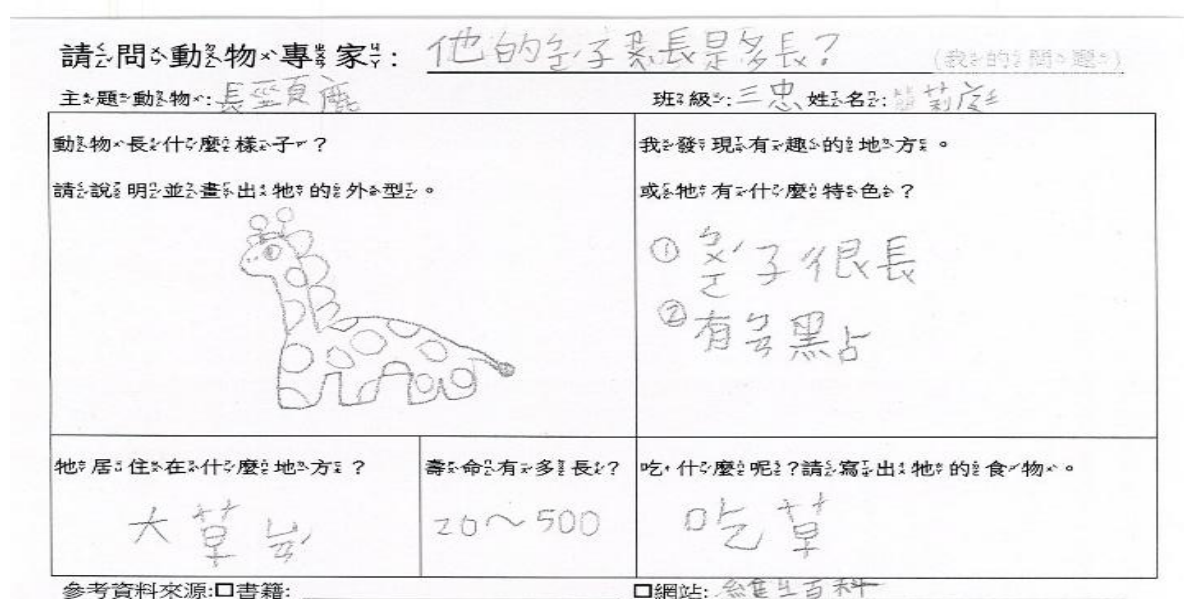 請問動物專家: 他的ㄅㄛˊ子ㄗㄨㄟˋ長是多長? (我的問題)
主題動物: 長頸鹿 班級: 三忠 姓名:
動物長什麼樣子?
請說明並畫出牠的外型。
我發現有趣的地方。
或牠有什麼特色?
① ㄅㄛˊ子很長
② 有ㄉㄜ˙黑占
牠居住在什麼地方?
大草
壽命有多長?
20~500
吃什麼呢?請寫出牠的食物。
吃草
參考資料來源:□書籍: □網站: 維生百科